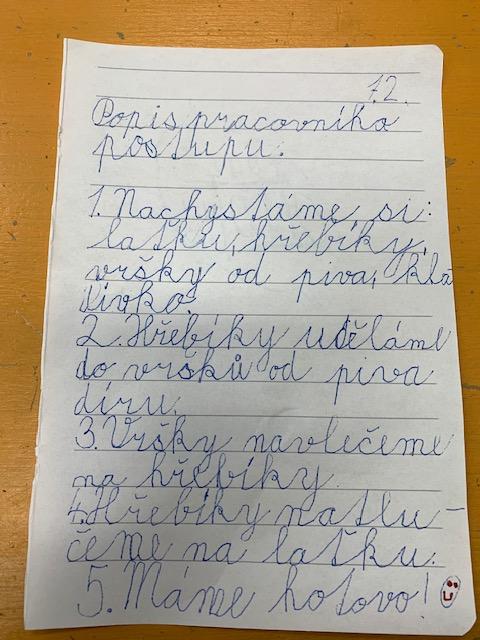 7.2.
Popis pracovního
postupu.
1. Nachystáme si:
laťku, hřebíky,
vršky od piva, kla
divko.
2. Hřebíky uděláme
do vršků od piva
díru.
3. Vršky navlečeme
na hřebíky.
4. Hřebíky natlu-
čeme na laťku.
5. Máme hotovo!